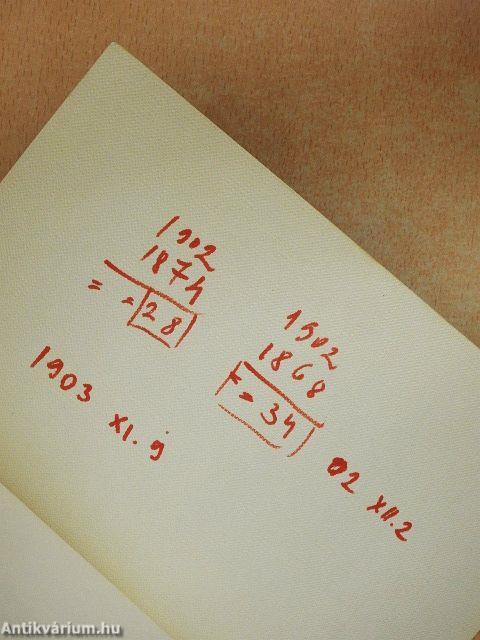 1902
1874
= = 28
1903 XI. 9
1902
1868
= = 34
02 XII.2
Antikvárium.hu